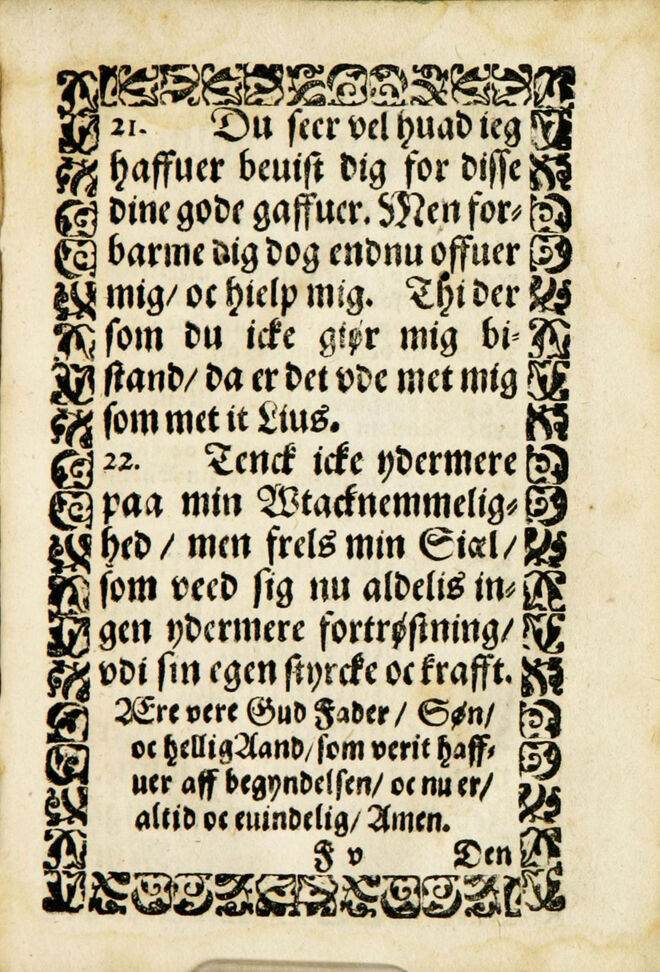 21. Du seer vel huad ieg
haffuer beuist dig for disse
dine gode gaffuer. Men for⸗
barme dig dog endnu offuer
mig/ oc hielp mig. Thi der
som du icke giør mig bi⸗
stand/ da er det vde met mig
som met it Lius.
22. Tenck icke ydermere
paa min Wtacknemmelig⸗
hed / men frels min Siæl/
som veed sig nu aldelis in⸗
gen ydermere fortrøstning/
vdi sin egen styrcke oc krafft.
Ære vere Gud Fader / Søn/
oc hellig Aand/ som verit haff⸗
uer aff begyndelsen/ oc nu er/
altid oc euindelig/ Amen.
F v Den